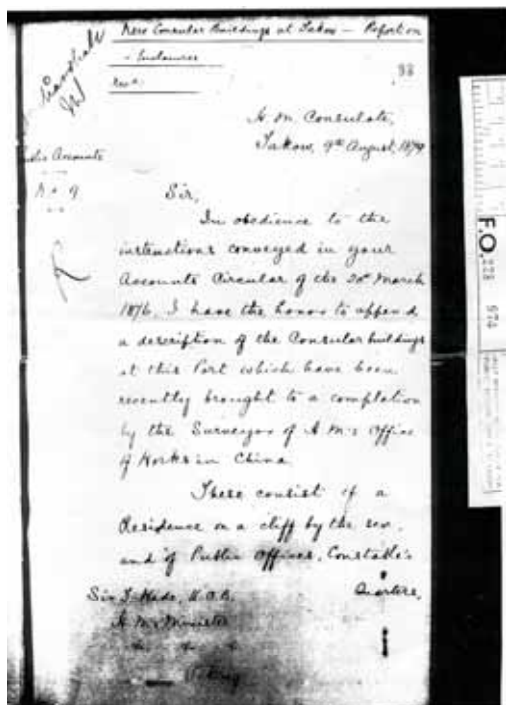 New Consular Buildings at Takow — Report on
1 Enclosure
93
H. M. Consulate,
Takow, 9th August, 1879
Public Accounts
No 9
Sir,
In obedience to the
instructions conveyed in your
Accounts Circular of the 20th March
1876, I have the honor to append
a description of the Consular buildings
at this Port which have been
recently brought to a completion
by the Surveyor of H. M.'s Office
of Works in China
These consist of a
Residence on a cliff by the sea,
and of Public Offices, Constable's
Quarters,
Sir T. Wade, K.C.B.
H. M. Minister
Peking
F.O. 228 974